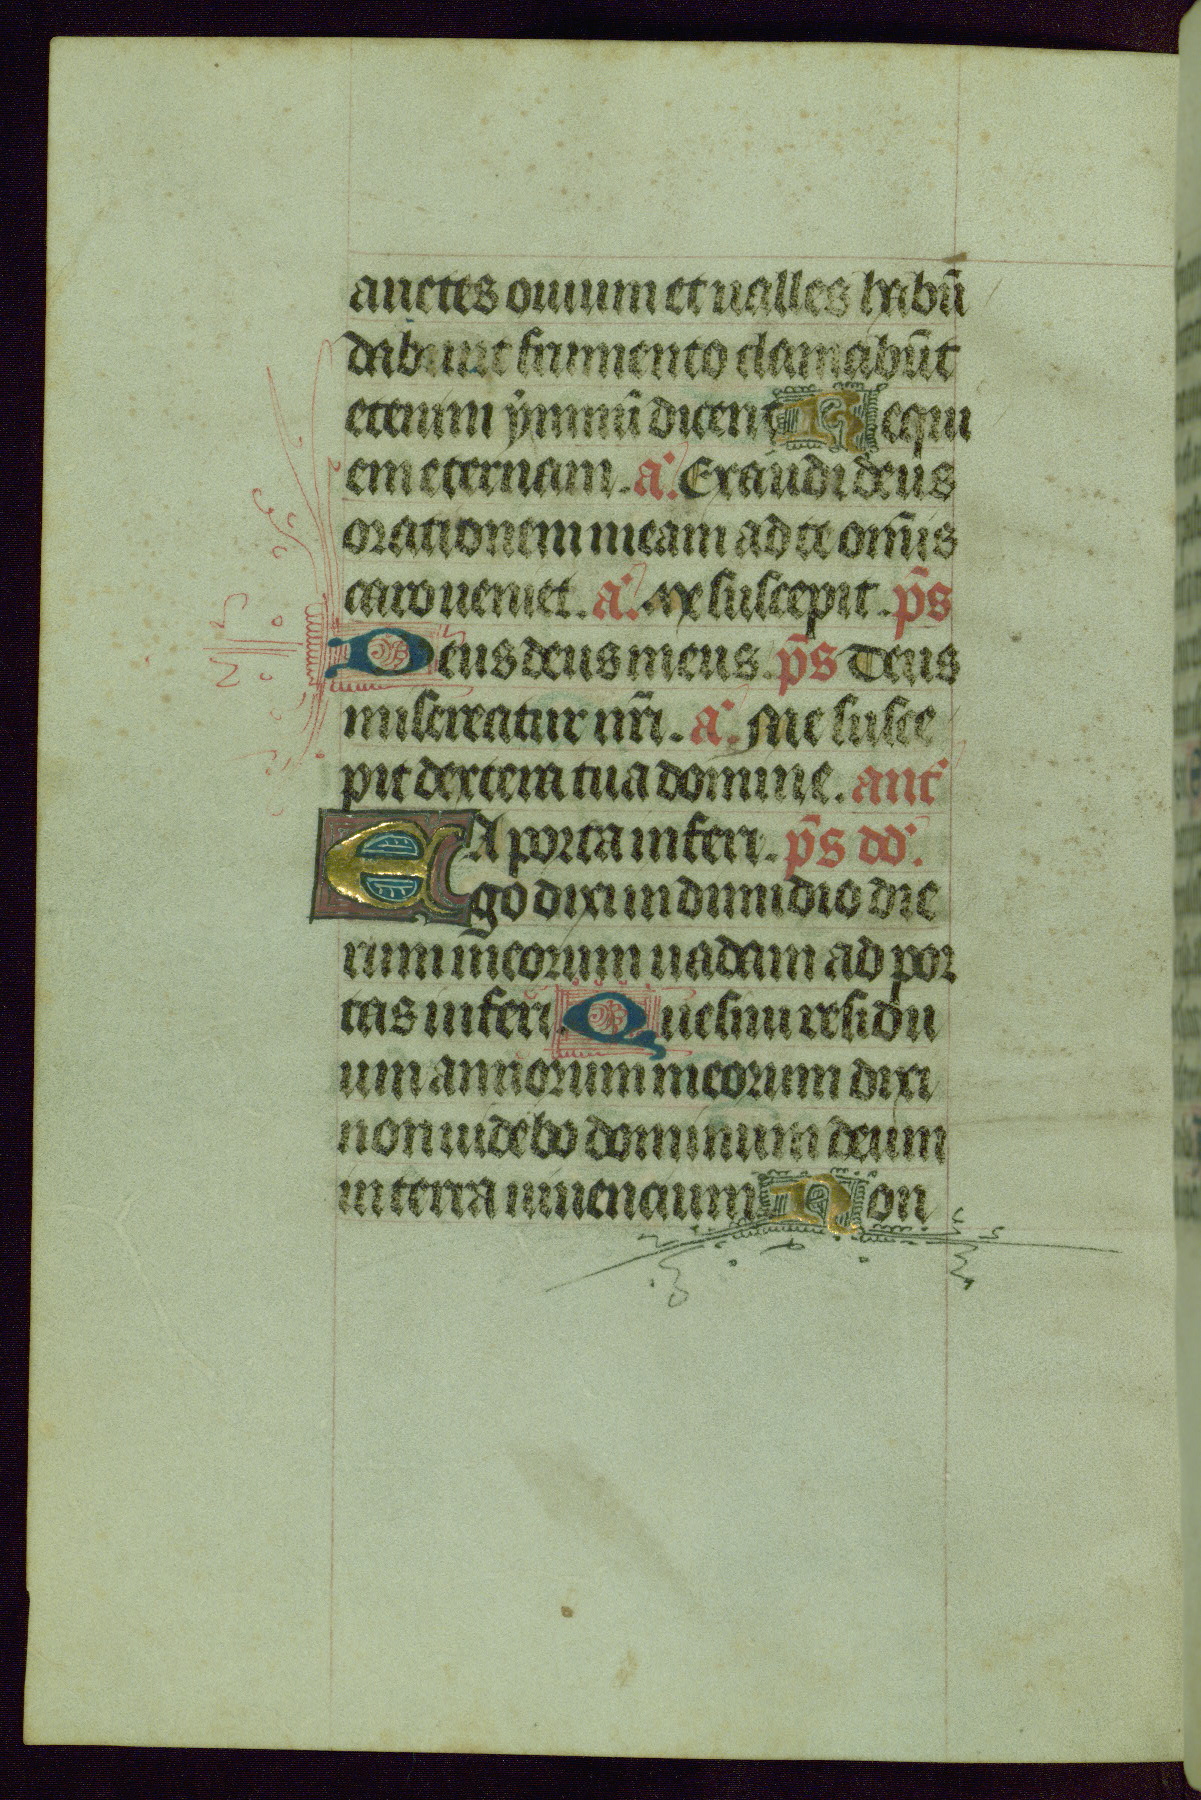 arietes ouium et ualles habū
dabunt frumento clamabūt
etenim ẏmnū dicent Requi
em eternam. a. Exaudi deus
orationem meam ad te om̄is
caro ueniet. a. Me suscepit. p̄s
Deus deus meus. p̄s Deus
misereatur nr̄i. a. Me susce
pit dextera tua domine. ant
A porta inferi. p̄s dd.
Ego dixi in dimidio die
rum meorum uadam ad por
tas inferi. Quesiui residu
um annorum meorum dixi
non uidebo dominum deum
in terra uiuencium Non